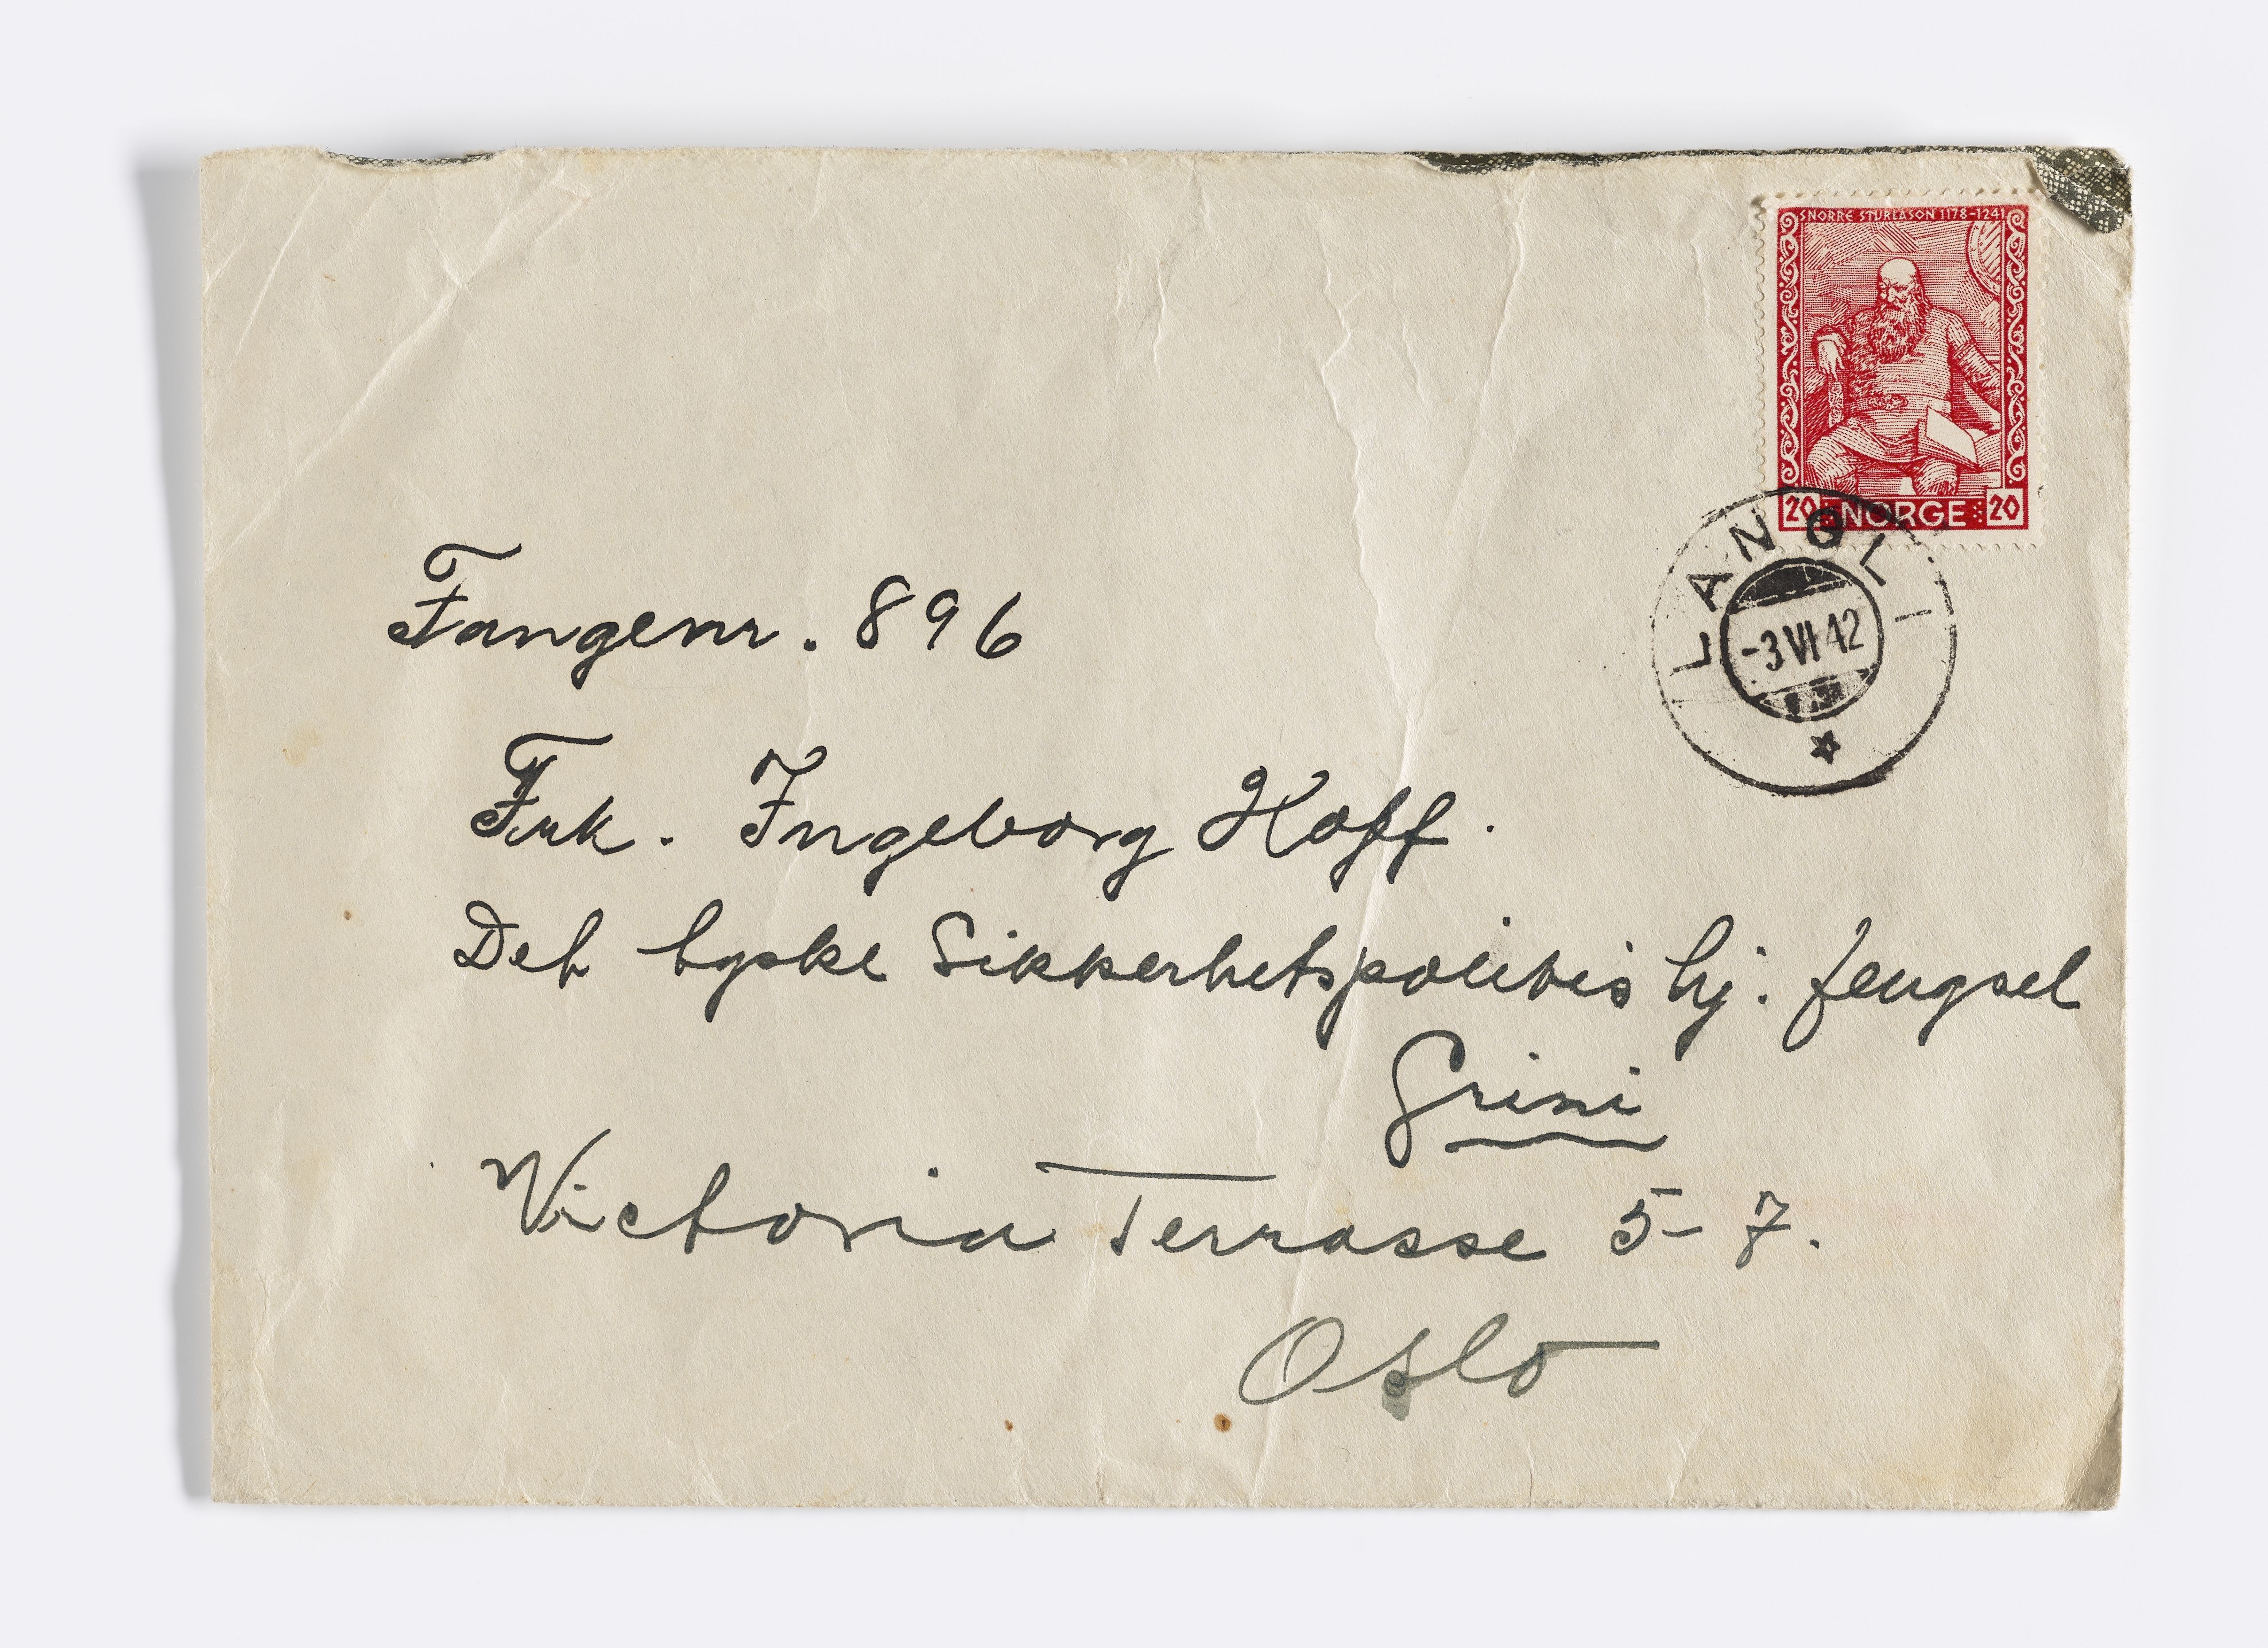 SNORRE STURLASON 1178-1241
20 NORGE 20
LANGLI
-3 VI 42
Fangenr. 896
Frk. Ingeborg Hoff.
Det tyske Sikkerhetspolitis hj. fengsel
Grini
Victoria Terrasse 5-7.
Oslo